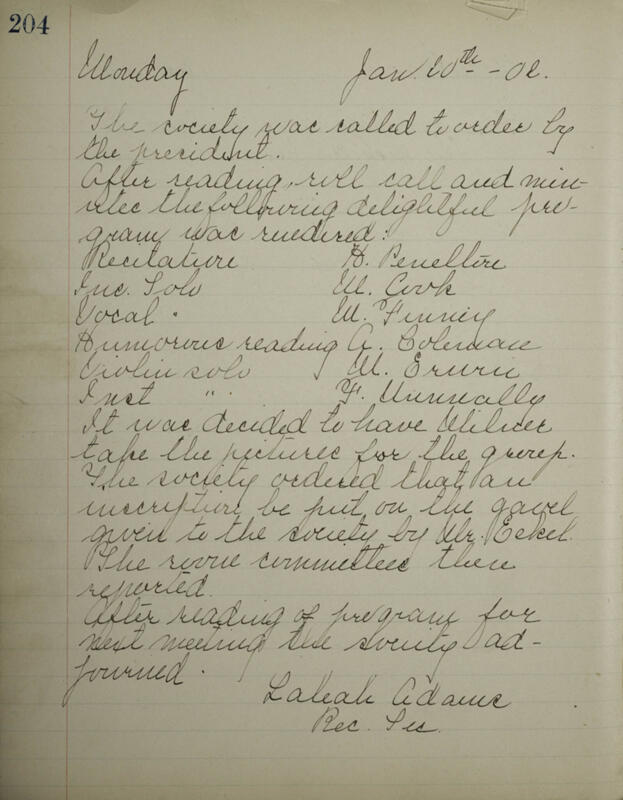 204
Monday Jan. 20th - 02.
The society was called to order by
the president.
After reading, roll call and min-
utes the following delightful pro-
gram was rendered:
Recitation H. Penelton
Ins. Solo M. Cook
Vocal " M. Finney
Humorous reading A. Coleman
Violin solo M. Erwin
Inst " F. Nunnally
It was decided to have Milner
take the pictures for the group.
The society ordered that an
inscription be put on the gavel
given to the society by Mr. Eckel.
The room committee then
reported.
After reading of program for
next meeting the society ad-
journed.
Adams
Rec. Sec.